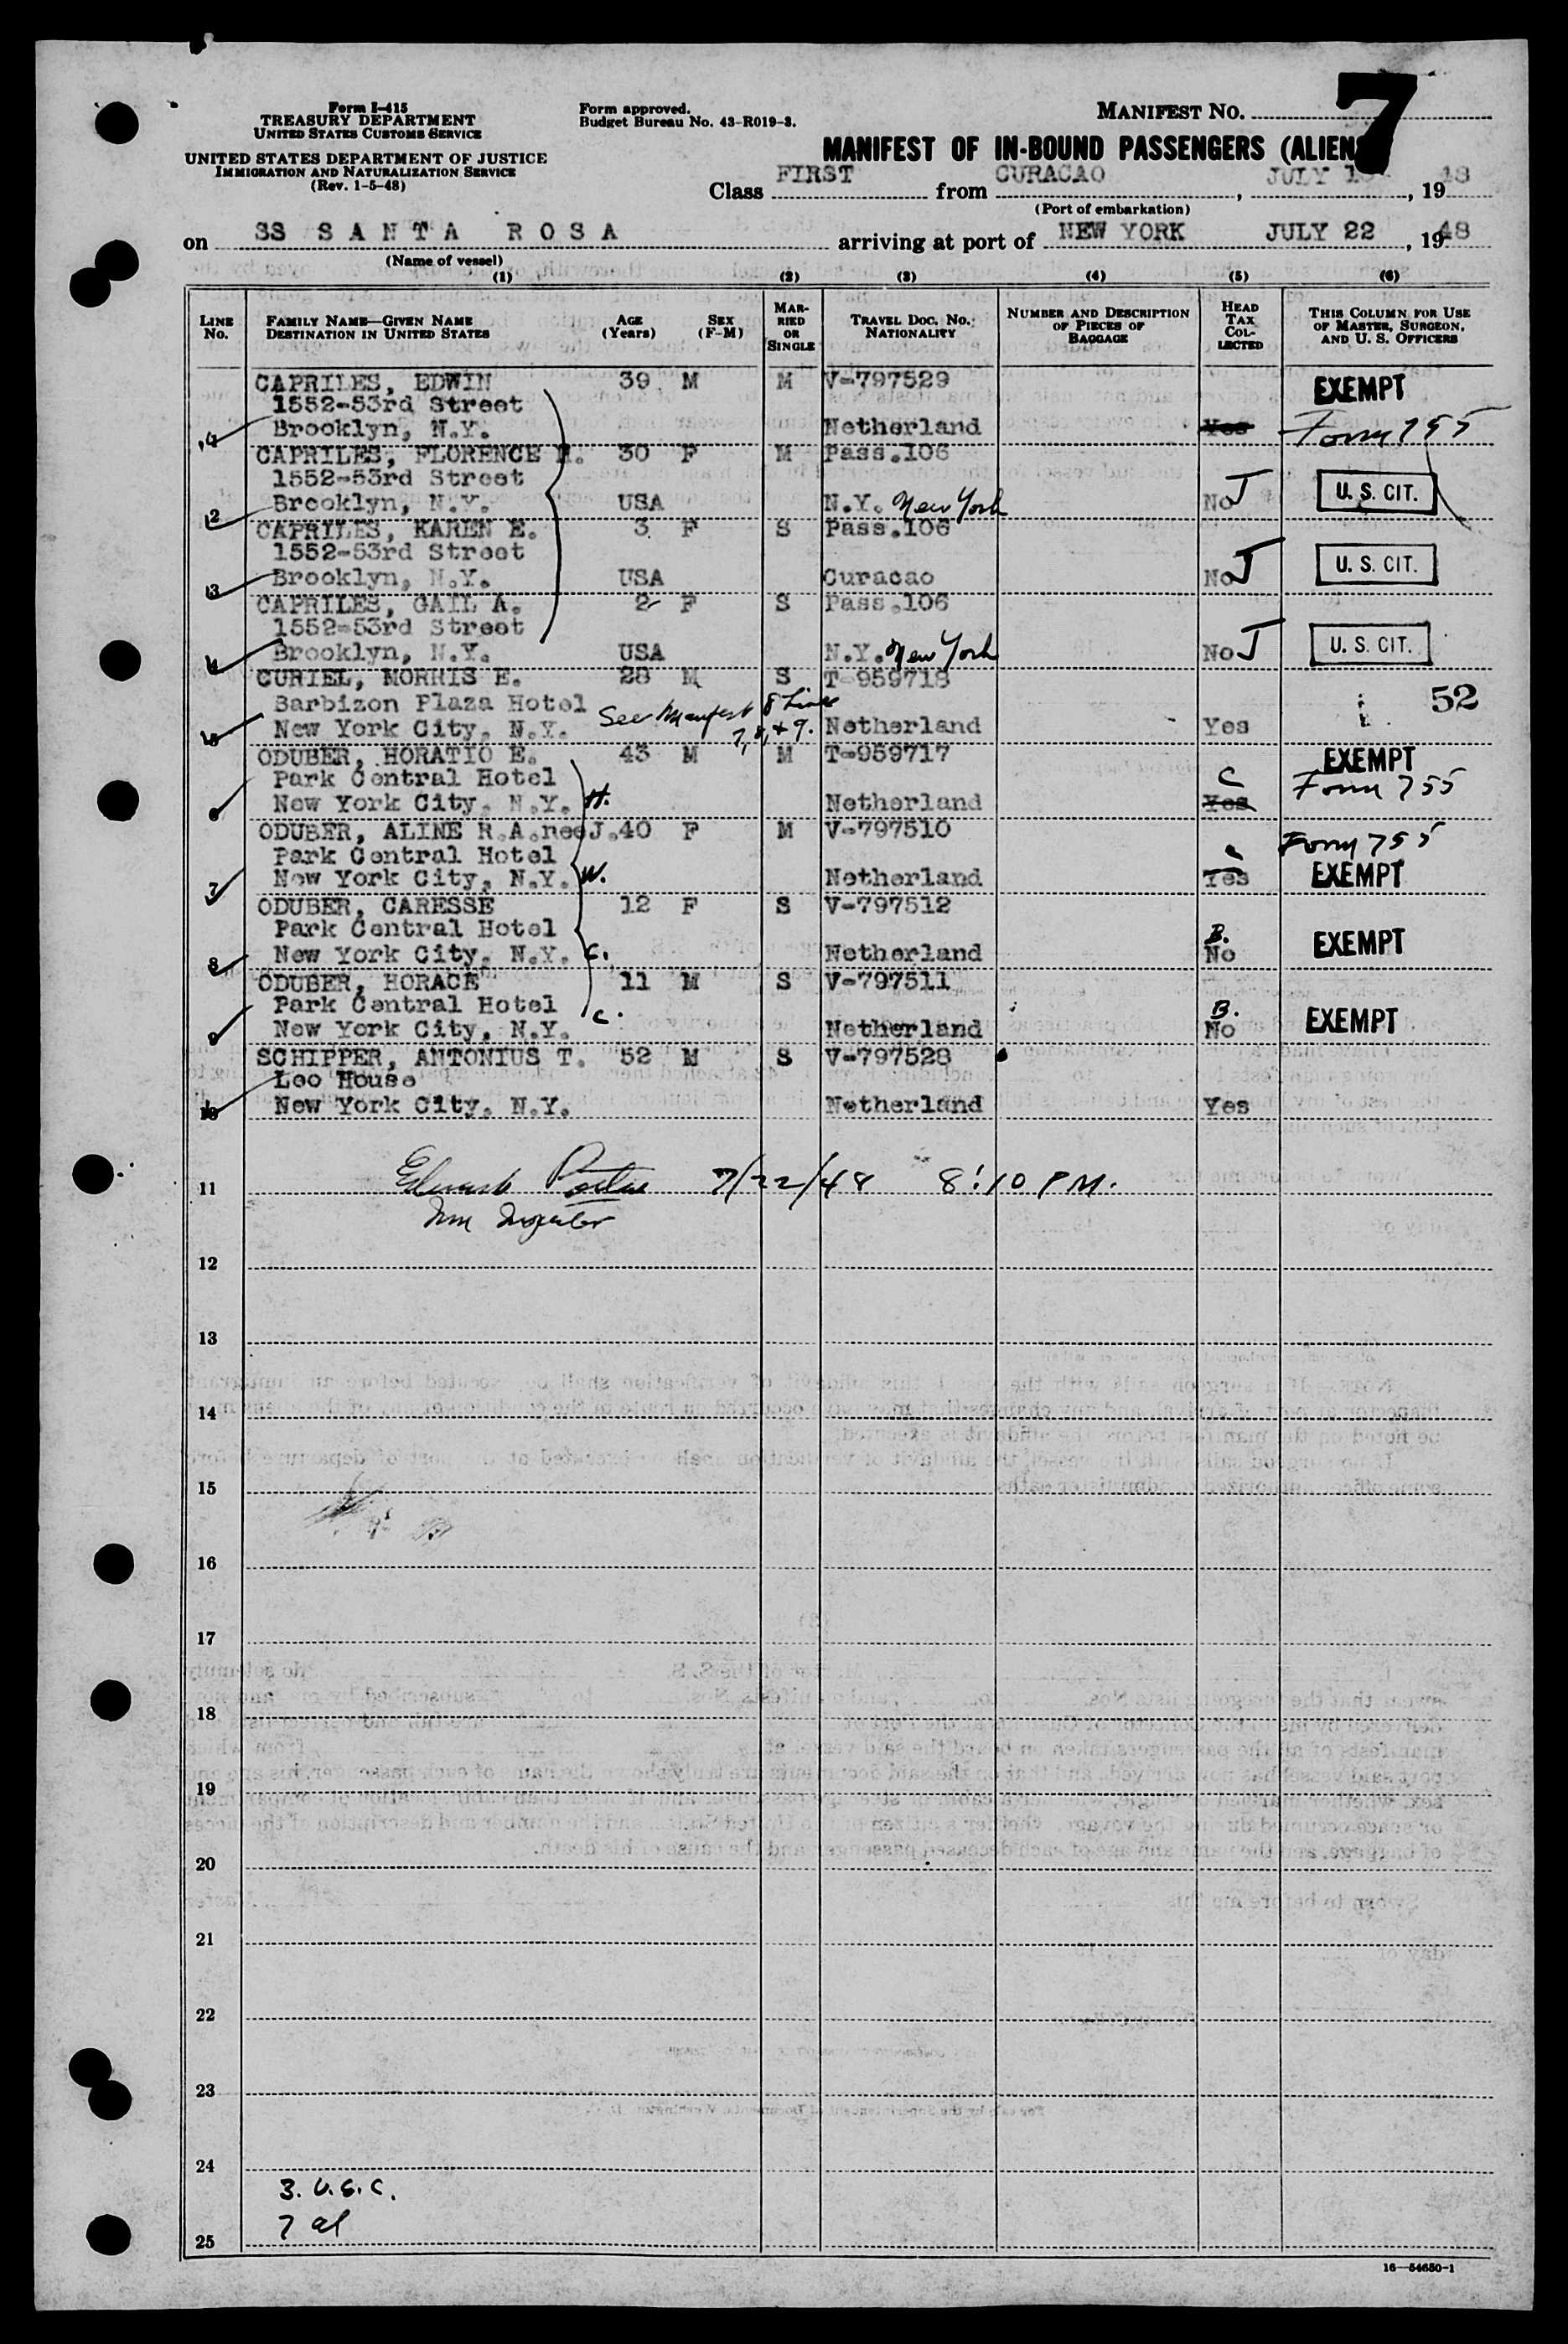 Form I-415
TREASURY DEPARTMENT
UNITED STATES CUSTOMS SERVICE
UNITED STATES DEPARTMENT OF JUSTICE
IMMIGRATION AND NATURALIZATION SERVICE
(Rev. 1-5-48)
Form approved.
Budget Bureau No. 43-R019-3.
MANIFEST NO. 7
MANIFEST OF IN-BOUND PASSENGERS (ALIEN
Class FIRST from CURACAO, JULY, 1948
(Port of embarkation)
on SS SANTA ROSA arriving at port of NEW YORK JULY 22, 1948
(Name of vessel)
(1) (2) (3) (4) (5) (6)
LINE NO. FAMILY NAME—GIVEN NAME DESTINATION IN UNITED STATES AGE (Years) SEX (F-M) MARRIED OR SINGLE TRAVEL DOC. NO. NATIONALITY NUMBER AND DESCRIPTION OF PIECES OF BAGGAGE HEAD TAX COLLECTED THIS COLUMN FOR USE OF MASTER, SURGEON, AND U. S. OFFICERS
CAPRILES, EDWIN 39 M M V-797529 EXEMPT
1552-53rd Street
Brooklyn, N.Y. Netherland Yes Form 755
CAPRILES, FLORENCE 30 F M Pass.106
1552-53rd Street U. S. CIT.
2 Brooklyn, N.Y. USA N.Y. New York No J
CAPRILES, KAREN E. 3 F S Pass.106
1552-53rd Street U. S. CIT.
3 Brooklyn, N.Y. USA Curacao No J
CAPRILES, GAIL A. 2 F S Pass.106
1552-53rd Street U. S. CIT.
4 Brooklyn, N.Y. USA N.Y. New York No J
CURIEL, MORRIS E. 28 M S T-959718 52
Barbizon Plaza Hotel See Manifest 8 Lines
5 New York City, N.Y. 7, 8, + 9. Netherland Yes
ODUBER, HORATIO E. 43 M M T-959717 EXEMPT
Park Central Hotel C Form 755
6 New York City, N.Y. H. Netherland Yes
ODUBER, ALINE R.A.nee J. 40 F M V-797510 Form 755
Park Central Hotel
7 New York City, N.Y. W. Netherland Yes EXEMPT
ODUBER, CARESSE 12 F S V-797512
Park Central Hotel B. EXEMPT
8 New York City, N.Y. C. Netherland No
ODUBER, HORACE 11 M S V-797511
Park Central Hotel B. EXEMPT
9 New York City, N.Y. C. Netherland No
SCHIPPER, ANTONIUS T. 52 M S V-797528
Leo House
10 New York City, N.Y. Netherland Yes
11 7/22/48 8:10 PM.
Imm Inspector
12
13
14
15
16
17
18
19
20
21
22
23
24
3. U.S.C.
7 al
25
16—54650-1